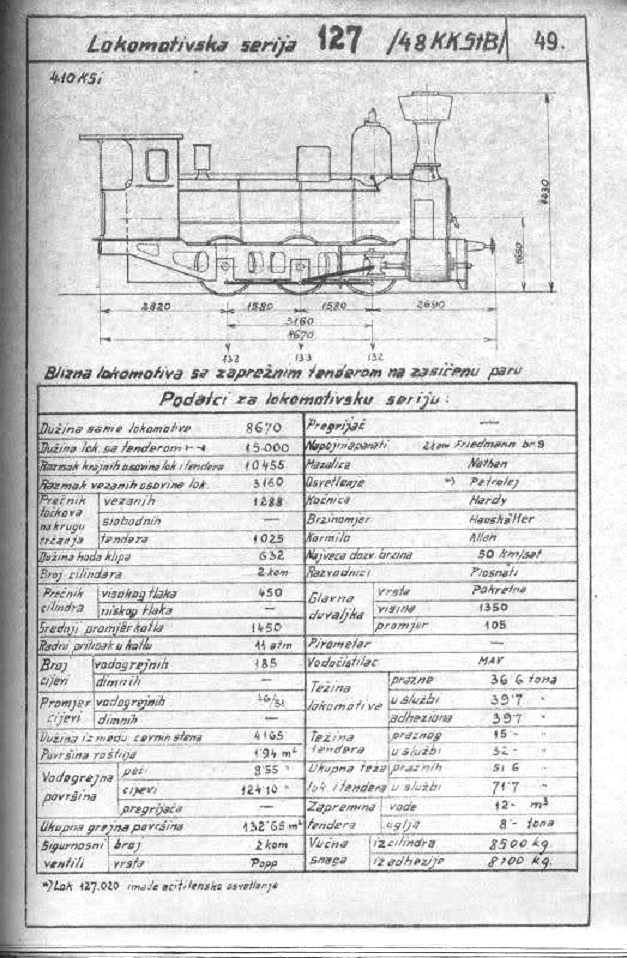 Lokomotivska serija 127 /48 KKStB/ 49.
410KSi
4630
1650
2820 1580 1580 2690
3160
8670
13.2 13.3 13.2
Blizna lokomotiva sa zaprežnim tenderom na zasićenu paru
Podatci za lokomotivsku seriju:
Dužina same lokomotive 8670
Dužina lok. sa tenderom 15.000
Razmak krajnih osovina lok. i tendera 10455
Razmak vezanih osovina lok. 3160
Prečnik točkova na krugu trčanja vezanih 1288
slobodnih —
tendera 1025
Dužina hoda klipa 632
Broj cilindara 2 kom
Prečnik cilindra visokog tlaka 450
niskog tlaka —
Srednji promjer kotla 1450
Radni pritisak u kotlu 11 atm
Broj cijevi vodogrejnih 185
dimnih —
Promjer cijevi vodogrejnih
dimnih —
Dužina između cevnih stena 4165
Površina roštilja 1'94 m²
Vodogrejna površina peći 8'55 "
cijevi 124'10 "
pregrijača —
Ukupna grejna površina 132'65 m²
Sigurnosni ventili broj 2 kom
vrsta Popp
Pregrijač —
Napojni aparati 2 kom Friedmann br. 9
Mazalica Nathan
Osvetlenje *) Petrolej
Kočnica Hardy
Brzinomjer Haushälter
Kormilo Allan
Najveća dozv. brzina 50 km/sat
Razvodnici Plosnati
Glavna duvaljka vrsta Pokretna
visina 1350
promjer 105
Pirometar —
Vodočistilac MAV
Težina lokomotive prazne 36'6 tona
u službi 39'7 "
adheziona 39'7 "
Težina tendera praznog 15 - "
u službi 32 - "
Ukupna teža lok. i tendera praznih 51'6 "
u službi 71'7 "
Zapremina tendera vode 12 - m³
uglja 8 - tona
Vučna snaga iz cilindra 8500 kg.
iz adhezije 8100 kg.
*) Lok 127.020 imade acitilensko osvetlenje